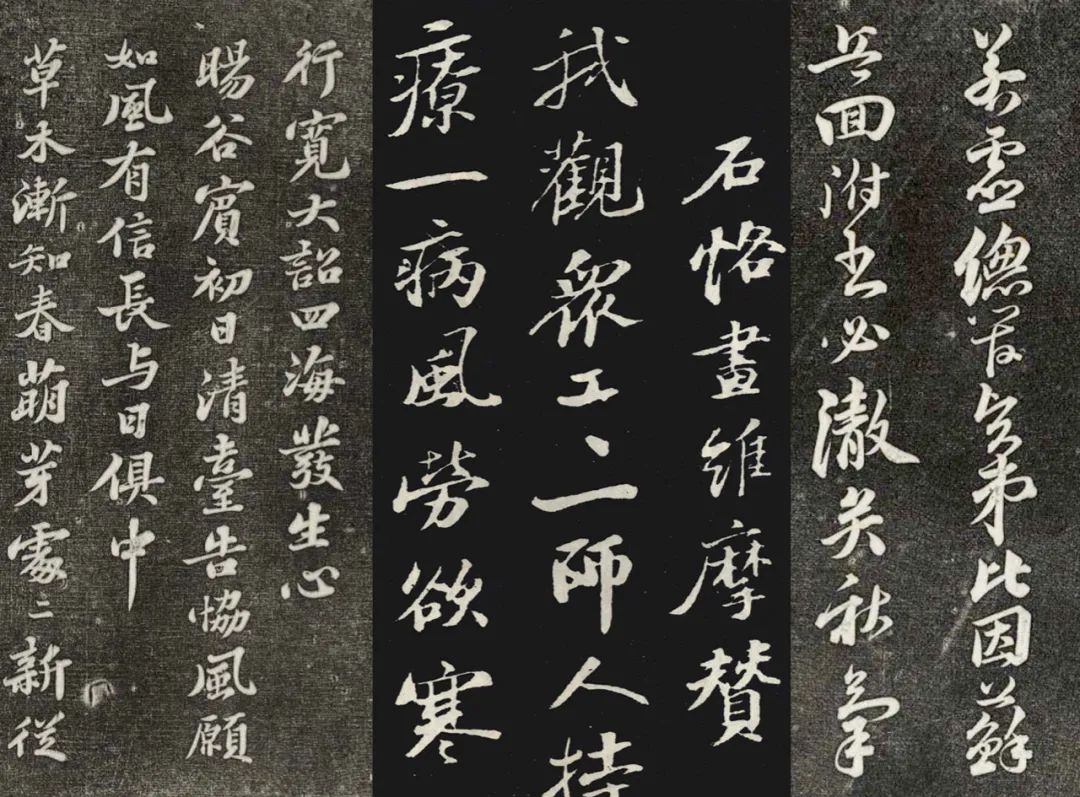 若虚緫管 弟比因蘇
兵回附書必澈矣秋氣
石恪畫維摩贊
我觀衆工〻一師人持
療一病風勞欲寒
行寬大詔四海發生心
暘谷賓初日清臺告協風願
如風有信長与日俱中
草木漸知春萌芽處〻新從